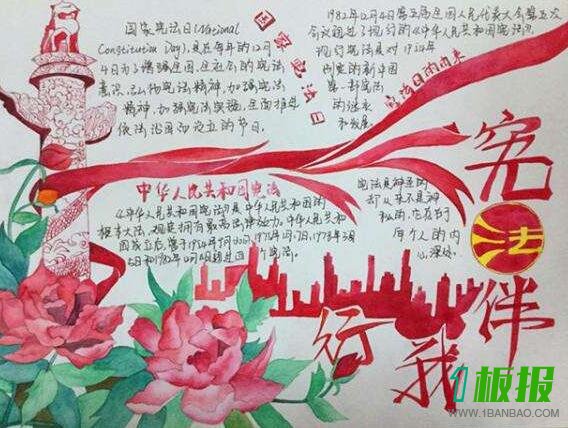 国家宪法日(National
Constitution Day),是在每年的12月
4日,为了增强全国全社会的宪法
意识,弘扬宪法精神,加强宪法
精神,加强宪法实施,全面推进
依法治国而设立的节日。
国家宪法日
1982年12月4日第五届全国人民代表大会第五次
会议通过了现行的《中华人民共和国宪法》。
现行宪法是对1954年
制定的新中国
第一部宪法
的继承
和发展。
宪法日的由来
中华人民共和国宪法
《中华人民共和国宪法》是中华人民共和国的
根本大法,规定拥有最高法律效力。中华人民共和
国成立后,曾于1954年9月20日、1975年1月17日、1978年3月
5日和1982年12月4日通过四个宪法。
宪法是神圣的
却从来不是神
秘的,它存在于
每个人的内
心深处。
宪法伴我行
1板报
WWW.1BANBAO.COM